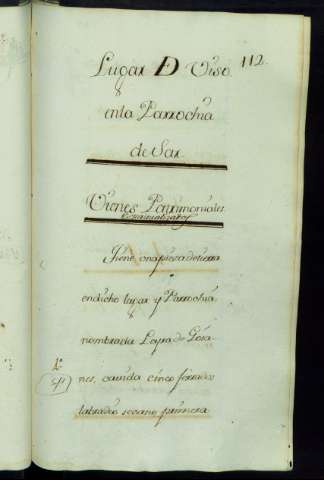 Lugar D Viso 112.
en la Parrochia
de Sar
Vienes Patrimoniales
Tiene una pieza de tierra
en dicho lugar y Parrochia
nombrada Leyra de
nes, cavida cinco ferrados
labradio secano primera